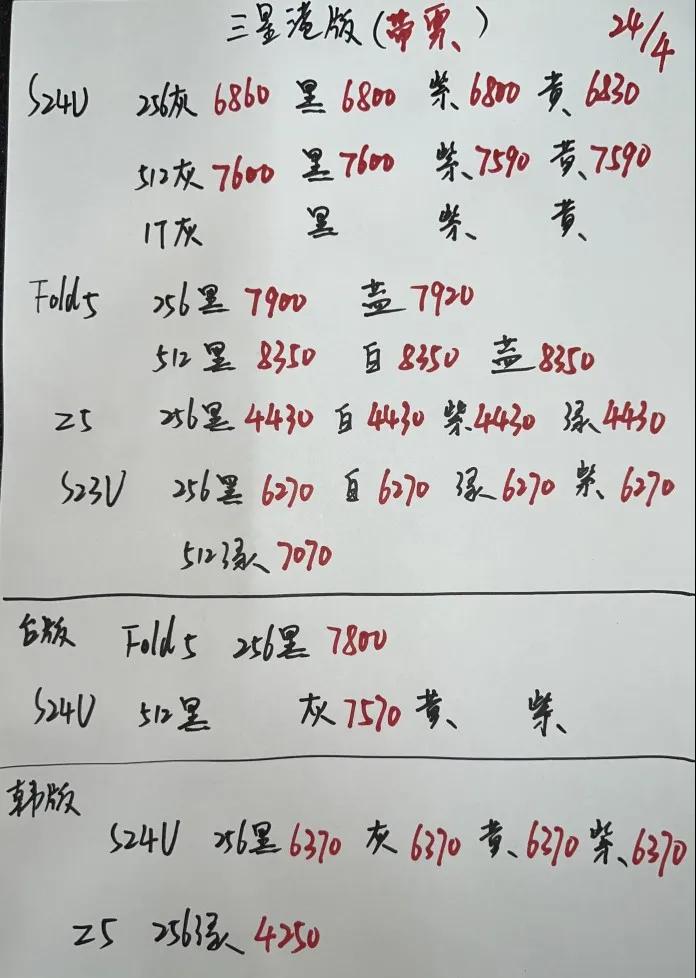 三星港版(带票) 24/4
S24U 256灰 6860 黑 6800 紫 6800 黄 6830
512灰 7600 黑 7600 紫 7590 黄 7590
1T灰 黑 紫 黄
Fold5 256黑 7900 蓝 7920
512黑 8350 白 8350 蓝 8350
Z5 256黑 4430 白 4430 紫 4430 绿 4430
S23U 256黑 6270 白 6270 绿 6270 紫 6270
512绿 7070
台版 Fold5 256黑 7800
S24U 512黑 灰 7570 黄 紫
韩版
S24U 256黑 6370 灰 6370 黄 6370 紫 6370
Z5 256绿 4250